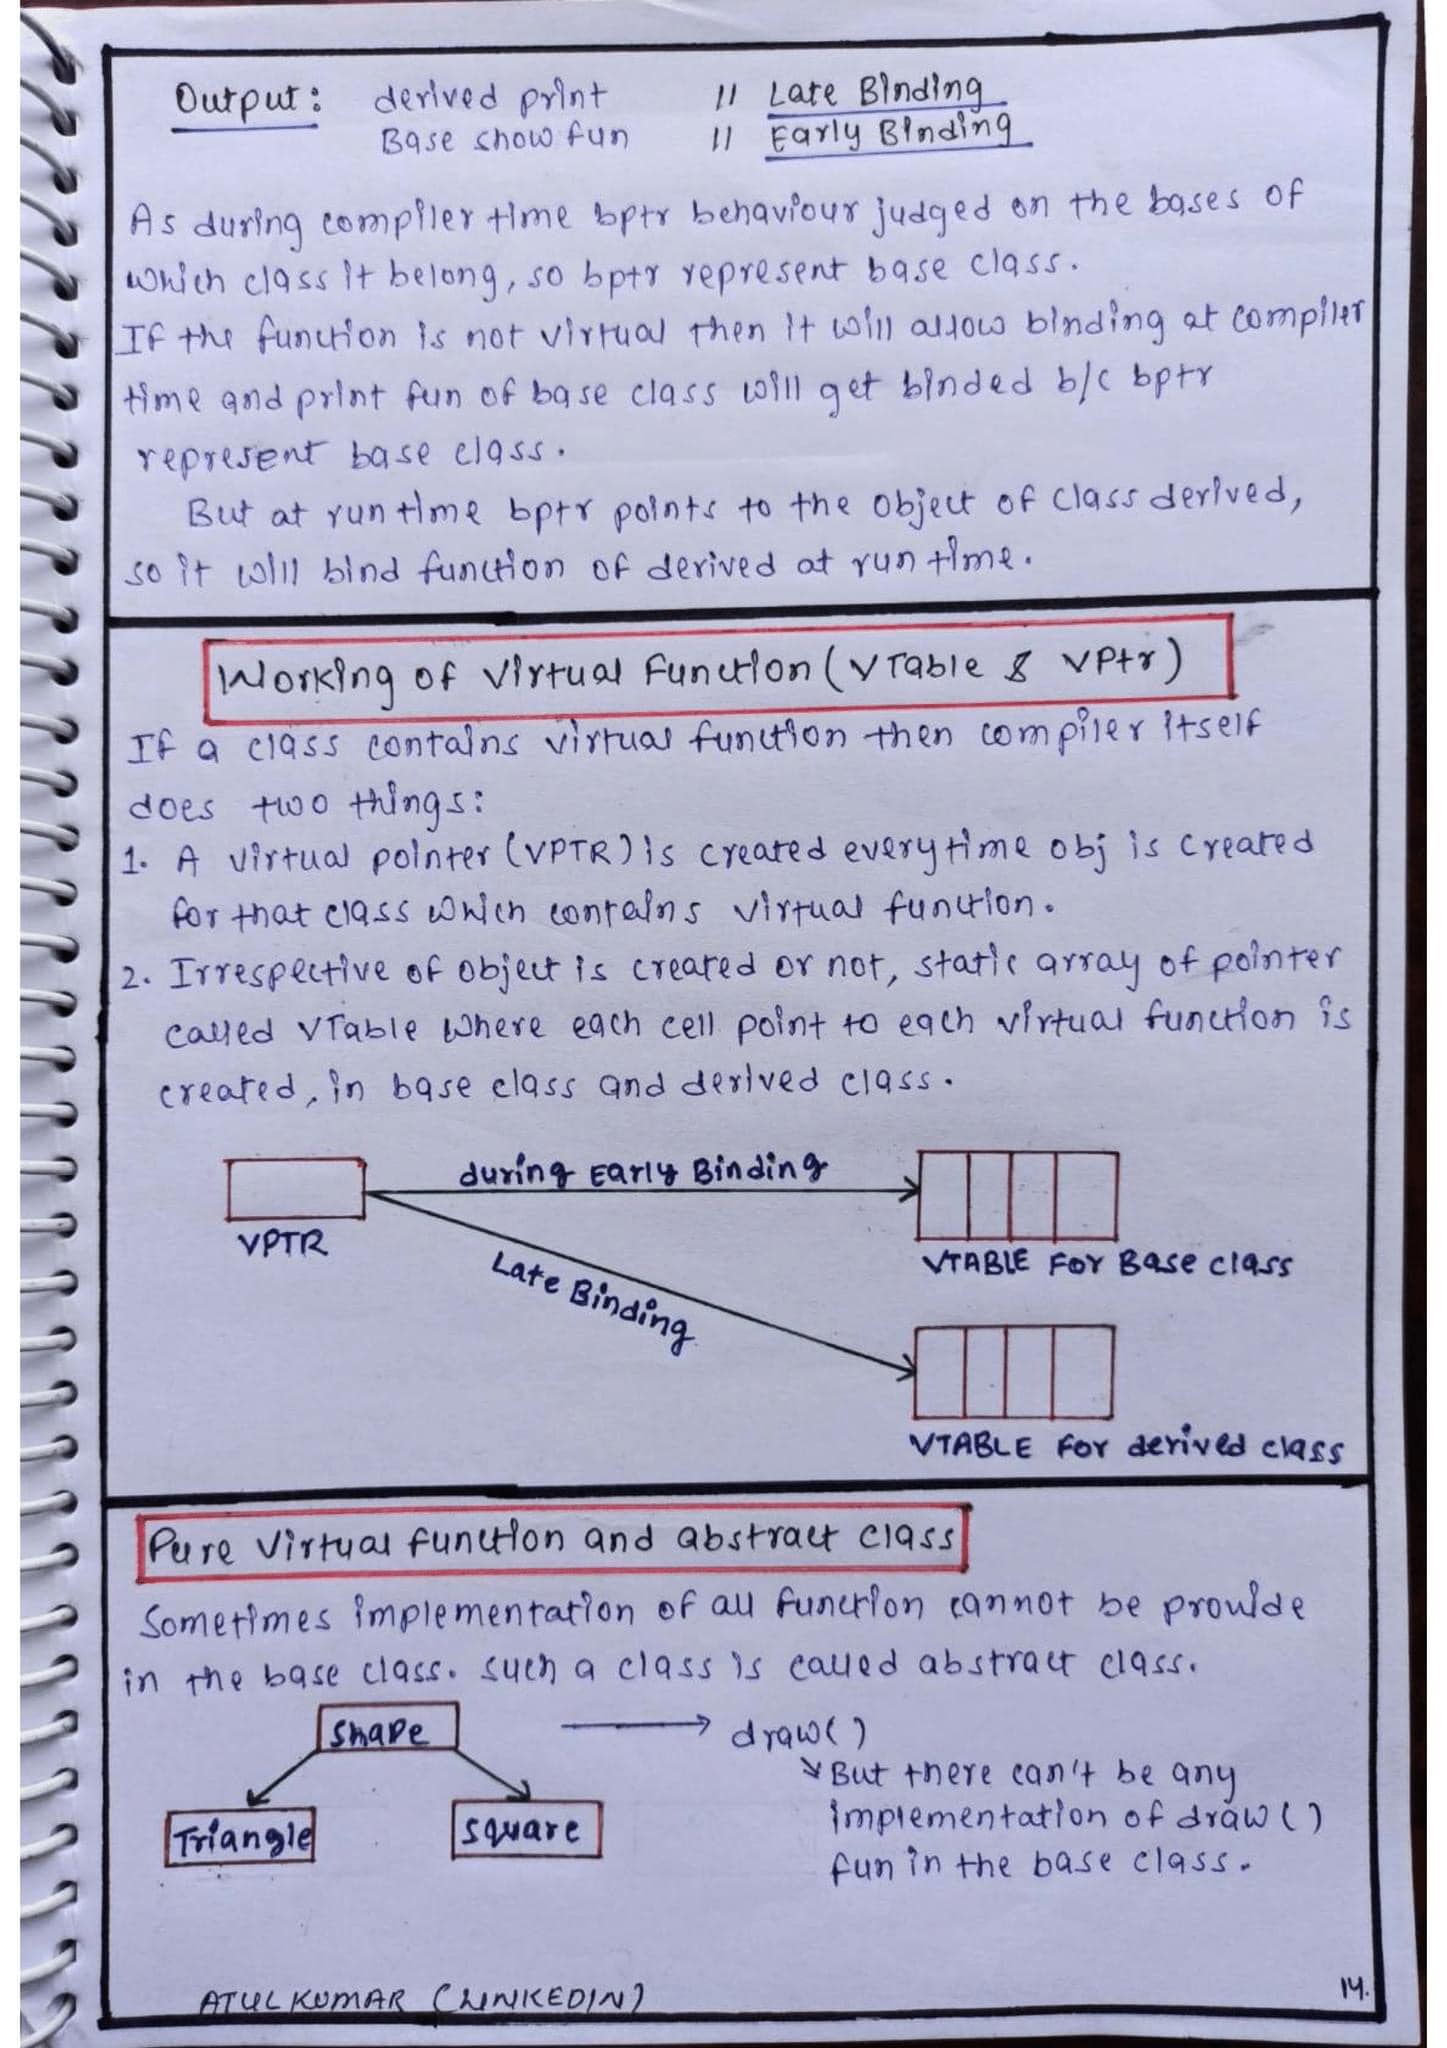 Output: derived print // Late Binding
Base show fun // Early Binding
As during compiler time bptr behaviour judged on the bases of
which class it belong, so bptr represent base class.
If the function is not virtual then it will allow binding at compiler
time and print fun of base class will get binded b/c bptr
represent base class.
But at run time bptr points to the object of class derived,
so it will bind function of derived at run time.
Working of Virtual Function (VTable & VPtr)
If a class contains virtual function then compiler itself
does two things:
1. A virtual pointer (VPTR) is created everytime obj is created
for that class which contains virtual function.
2. Irrespective of object is created or not, static array of pointer
called VTable where each cell point to each virtual function is
created, in base class and derived class.
during Early Binding
VPTR
VTABLE For Base class
Late Binding
VTABLE For derived class
Pure Virtual function and abstract class
Sometimes implementation of all function cannot be provide
in the base class. such a class is called abstract class.
Shape → draw()
But there can't be any
Triangle Square implementation of draw()
fun in the base class.
ATUL KUMAR (LINKEDIN)
14.